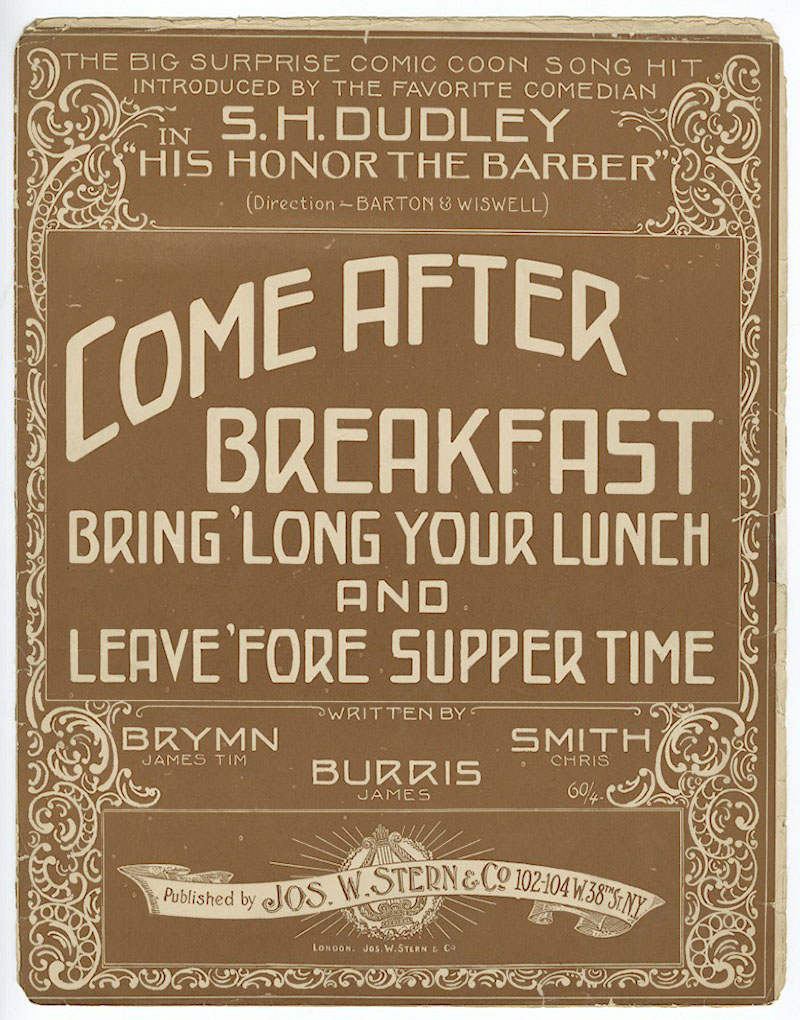 THE BIG SURPRISE COMIC COON SONG HIT
INTRODUCED BY THE FAVORITE COMEDIAN
S.H. DUDLEY
IN
"HIS HONOR THE BARBER"
(Direction ~ BARTON & WISWELL)
COME AFTER
BREAKFAST
BRING 'LONG YOUR LUNCH
AND
LEAVE 'FORE SUPPER TIME
WRITTEN BY
BRYMN
JAMES TIM
SMITH
CHRIS
BURRIS
JAMES
60/4.
Published by JOS. W. STERN & CO 102-104 W. 38TH ST. N.Y.
LONDON. JOS. W. STERN & CO